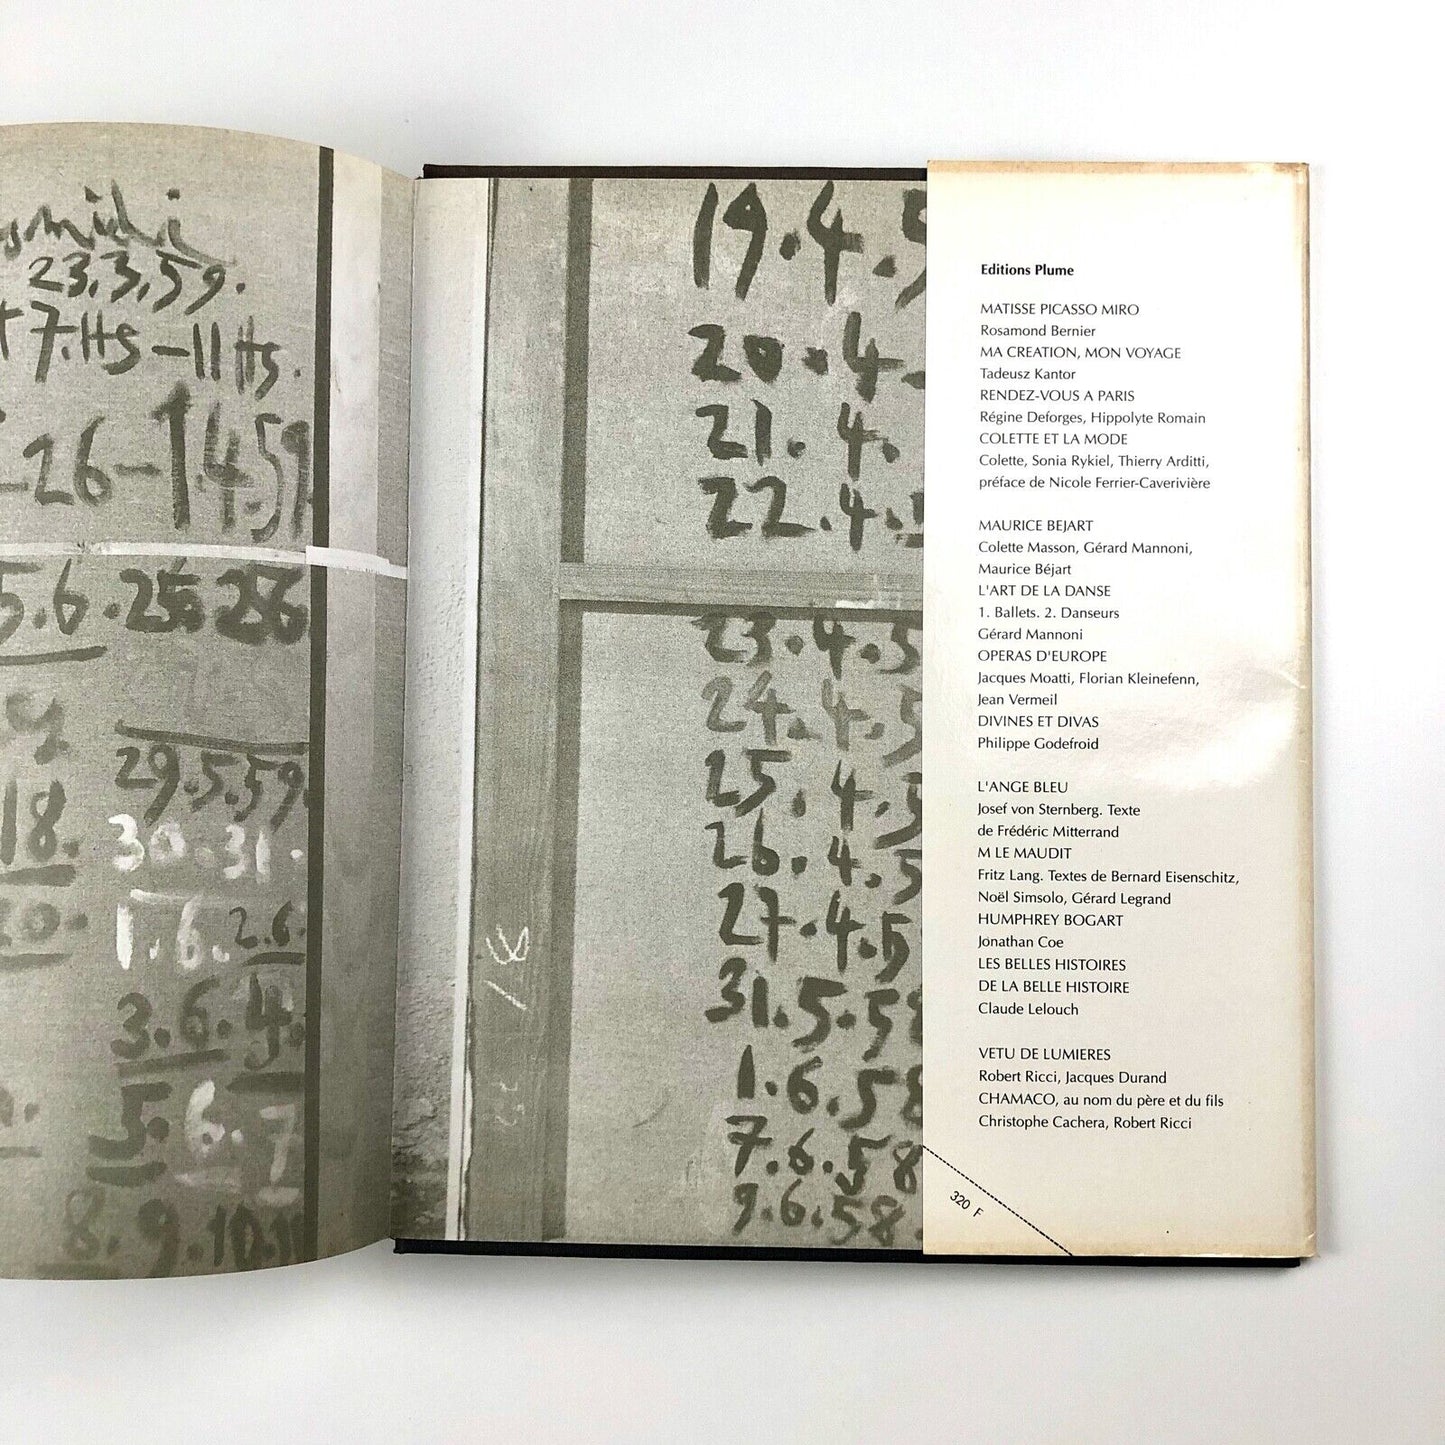 23.3.59.
7.Hs – 11 Hs.
26 – 1.4.59
5.6.25.26
29.5.59.
18.
30.31.
20.
1.6.2.6.
3.6.4.
5.6.7
8.9.10.11
19.4.5
20.4.
21.4.
22.4.5
23.4.5
24.4.5
25.4.5
26.4.5
27.4.5
31.5.58
1.6.58
7.6.58
9.6.58.
Editions Plume
MATISSE PICASSO MIRO
Rosamond Bernier
MA CREATION, MON VOYAGE
Tadeusz Kantor
RENDEZ-VOUS A PARIS
Régine Deforges, Hippolyte Romain
COLETTE ET LA MODE
Colette, Sonia Rykiel, Thierry Arditti,
préface de Nicole Ferrier-Caverivière
MAURICE BEJART
Colette Masson, Gérard Mannoni,
Maurice Béjart
L'ART DE LA DANSE
1. Ballets. 2. Danseurs
Gérard Mannoni
OPERAS D'EUROPE
Jacques Moatti, Florian Kleinefenn,
Jean Vermeil
DIVINES ET DIVAS
Philippe Godefroid
L'ANGE BLEU
Josef von Sternberg. Texte
de Frédéric Mitterrand
M LE MAUDIT
Fritz Lang. Textes de Bernard Eisenschitz,
Noël Simsolo, Gérard Legrand
HUMPHREY BOGART
Jonathan Coe
LES BELLES HISTOIRES
DE LA BELLE HISTOIRE
Claude Lelouch
VETU DE LUMIERES
Robert Ricci, Jacques Durand
CHAMACO, au nom du père et du fils
Christophe Cachera, Robert Ricci
320 F